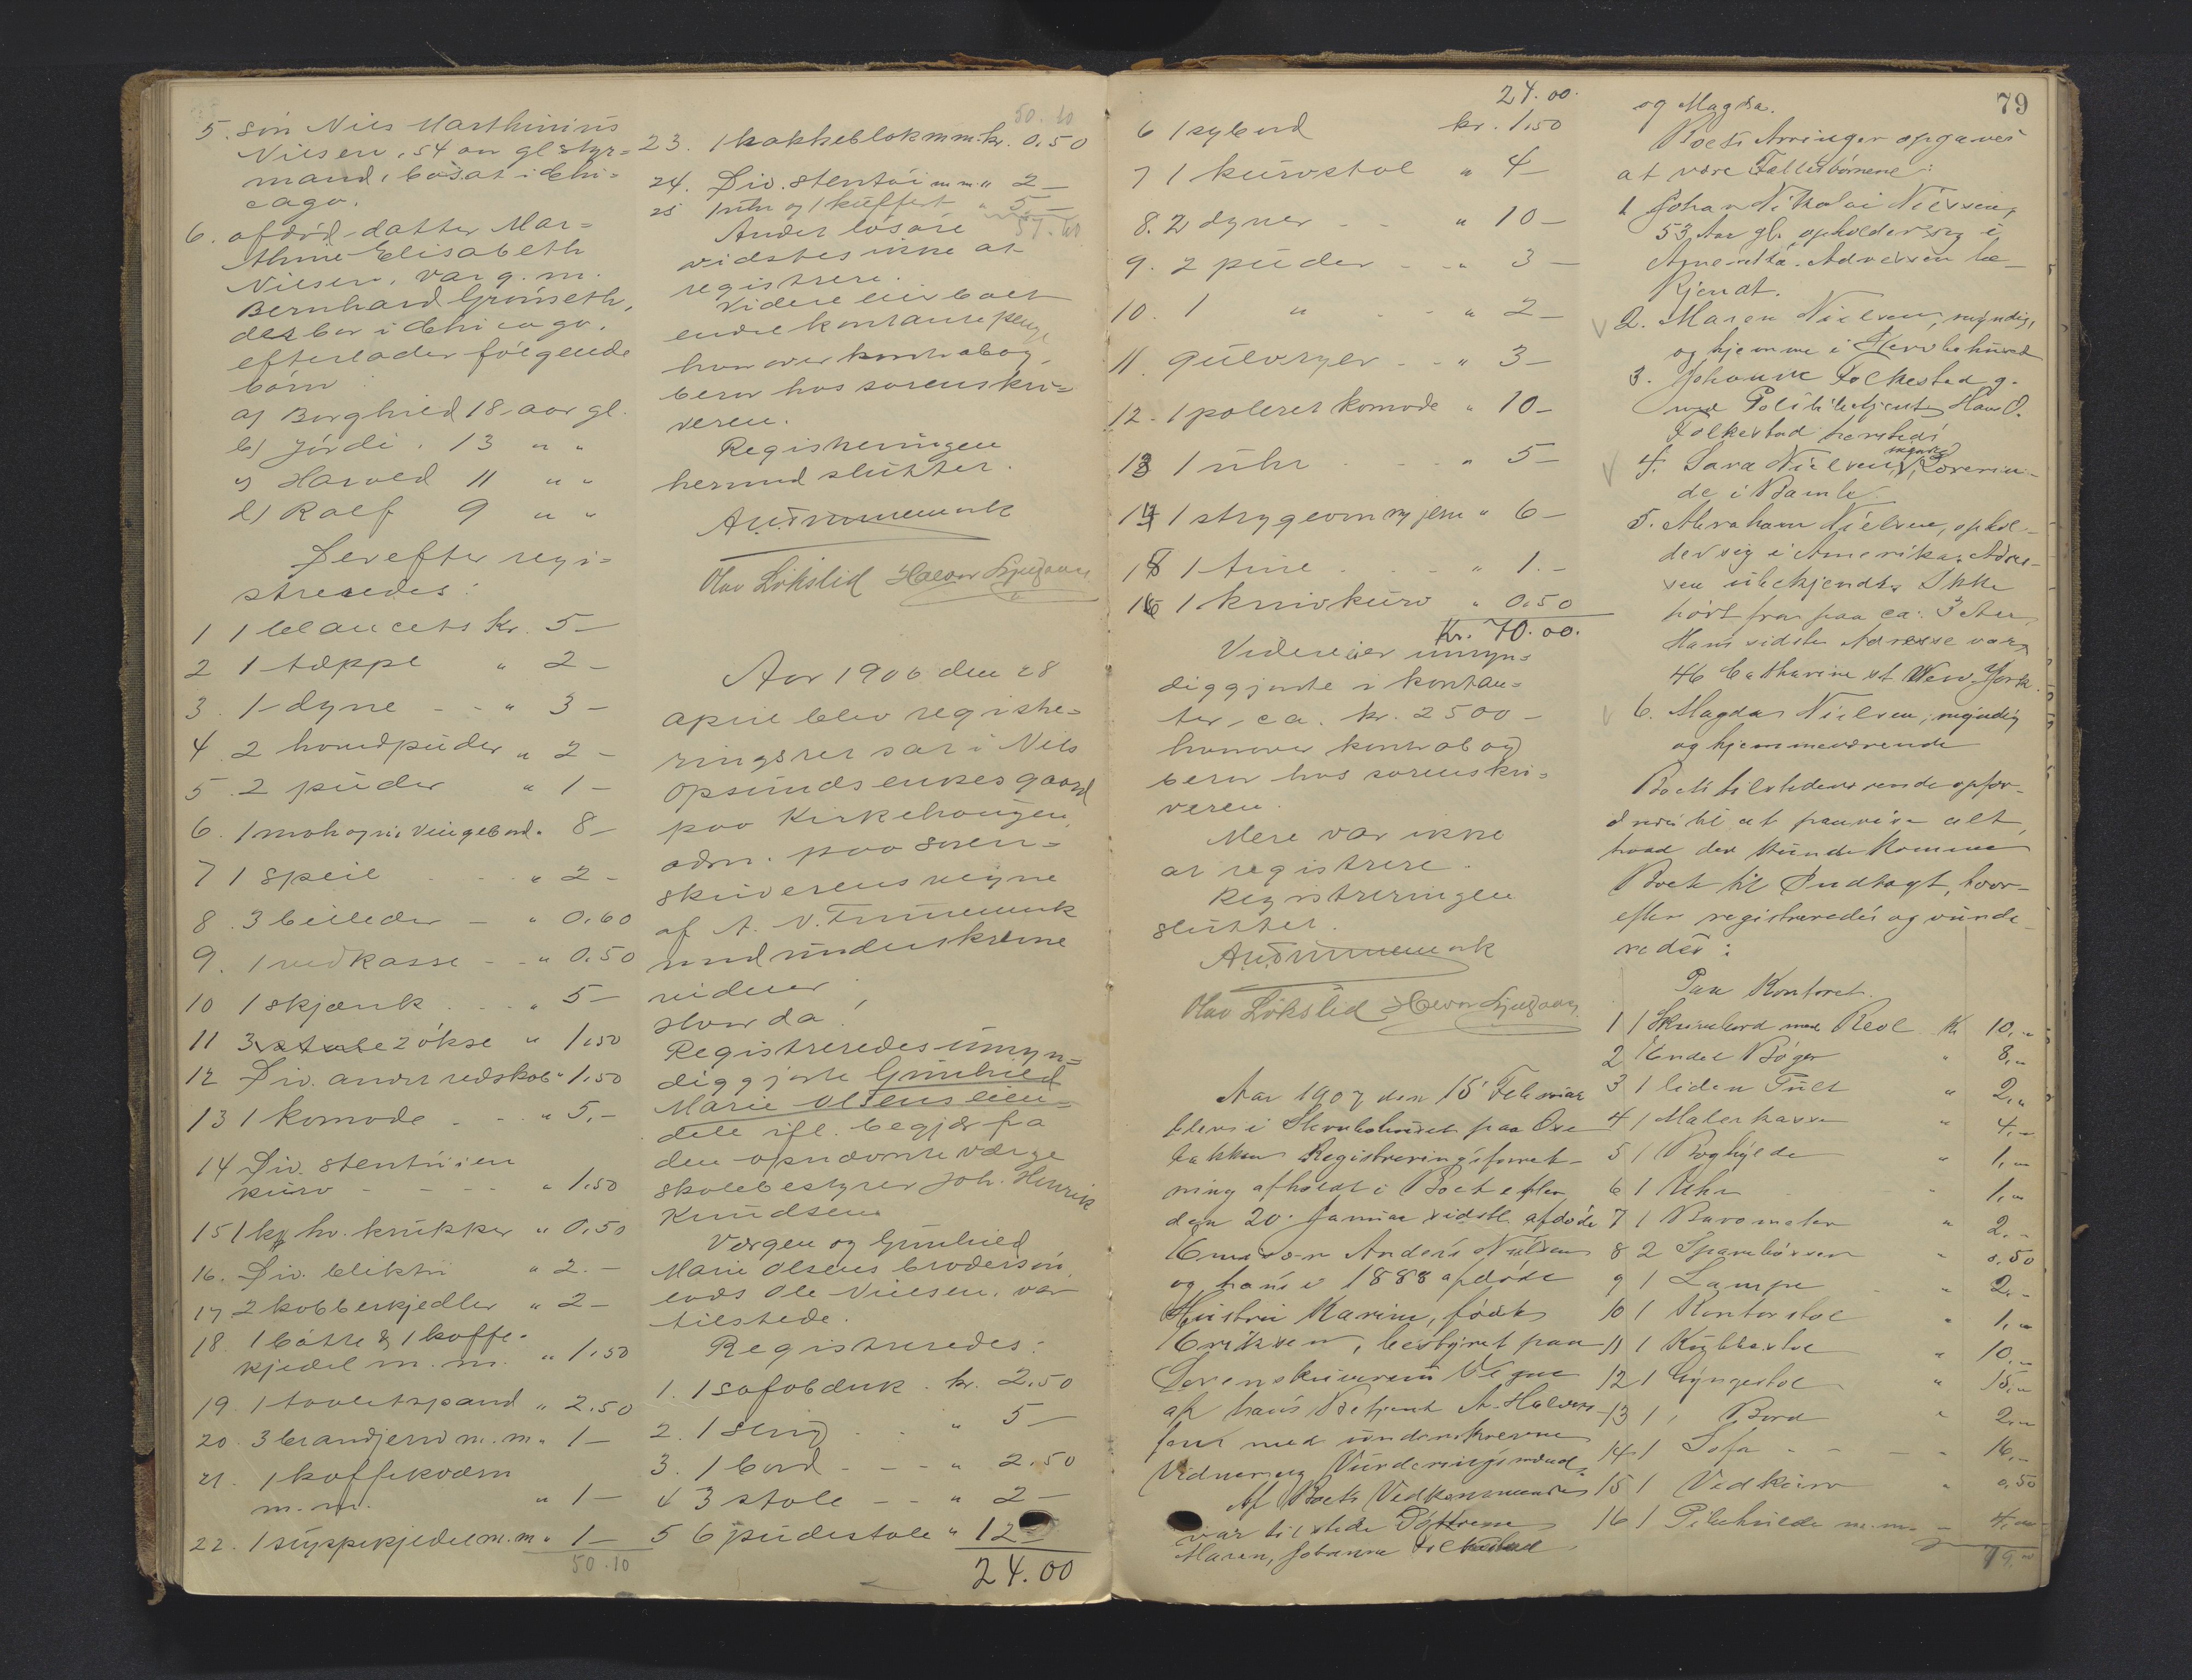 5. søn Nils Marthinius
Nilsen, 54 aar gl styr=
mand, bosat i Chi=
cago.
6. afdød datter Mar=
thine Elisabeth
Nilsen, var g. m.
Bernhard Grønseth,
der bor i Chicago.
efterlader følgende
børn:
a) Borghild 18 aar gl.
b) Jørdi, 13 " "
c) Harald 11 " "
d) Ralf 9 " "
Derefter regi=
streredes:
1 1 blancets kr. 5 —
2 1 tæppe " 2 —
3. 1 dyne - - " 3 —
4. 2 hovedpuder " 2 —
5. 2 puder " 1 —
6. 1 mahogni vingebord " 8 —
7 1 speil - - " 2 —
8. 3 billeder — " 0.60
9. 1 vedkasse - - " 0.50
10 1 skjænk - - " 5 —
11 3 økse " 1.50
12 Div. andet redskab " 1.50
13 1 komode - - " 5.-
14 Div. stentøi i en
kurv - - - - " 1.50
15 1 hv. krukker " 0.50
16. Div. bliktøi " 2.-
17 2 kobberkjedler " 2 —
18. 1 bøtte & 1 kaffe-
kjedel m. m. " 1.50
19. 1 toiletspand " 2.50
20. 3 brandjern m. m. " 1 —
21. 1 kaffekværn
m. m. " 1 —
22. 1 suppekjedel m. m " 1 —
50.10
50.10
23. 1 hakkeblok m m. kr. 0.50
24. Div. stentøi m m. " 2 —
25 1 uhr og 1 kuffert " 5 —
Andet løsøre
vidstes ikke at
registrere.
Videre eier boet
endel kontante penge
hvorover kontrabog
beror hos sorenskri=
veren.
Registreringen
hermed sluttet.
Olav Løkslid Halvor
Aar 1906 den 28
april blev registre=
ringsret sat i Nils
Opsunds enkes gaard
paa Kirkehougen,
adm. paa soren=
skriverens vegne
af A. N.
med underskrevne
vidner.
Hvor da:
Registreredes umyn=
diggjorte Gunhild
Marie Olsens eien=
dele ifl. begjær fra
den opnævnte værge
skolebestyrer Joh. Henrik
Knudsen.
Værgen og Gunhild
Marie Olsens brodersøn,
lods Ole Nilsen, var
tilstede.
Registreredes:
1. 1 sofabænk. kr. 2.50
2. 1 seng - - " 5 —
3. 1 bord - - - " 2.50
4 3 stole - - " 2 —
5 6 pudestole " 12
24.00
24.00.
6 1 sybord kr. 1.50
7 1 kurvstol " 4 —
8. 2 dyner - - " 10 —
9. 2 puder - - " 3 —
10. 1 " - - " 2 —
11. gulvryer - - " 3 —
12. 1 poleret komode " 10 —
13 1 uhr - - " 5 —
14 1 strygeovn og jern " 6 —
15 1 tine - - " 1.-
16 1 knivkurv " 0.50
Kr. 70.00.
Videre eier umyn=
diggjorte i kontan=
ter, ca. kr. 2500 —
hvorover kontrabog
beror hos sorenskri=
veren.
Mere var ikke
at registrere.
Registreringen
sluttet.
Olav Løkslid Halvor
Aar 1907 den 15 Februar
blev i Stervbohuset paa Oxe
bakken Registreringsforret-
ning afholdt i Boet efter
den 20. Januar sidstl. afdøde
Anders Nielsen
og hans i 1888 afdøde
Hustru Karine, født
Eriksen, bestyret paa
Sorenskriverens Vegne
af hans Betjent A. Halvor-
sen med underskrevne
Vidner og Vurderingsmænd.
Af Boets Vedkommende
var tilstede Døttrene
Maren, Johanne Folkestad
79
og Magda.
Boets Arvinger opgaves
at være Fællesbørnene:
1 Johan Nikolai Nielsen,
53 Aar gl. opholder sig i
Amerika. Adressen be-
kjendt.
2. Maren Nielsen, myndig,
og hjemme i Stervbohuset
3. Johanne Folkestad g.
med Politibetjent Hans O.
Folkestad hersteds
4. Sara Nielsen, myndig, Lærerin-
de i Bamle
5. Abraham Nielsen, ophol-
der sig i Amerika; Adres-
sen ubekjendt. Ikke
hørt fra paa ca. 3 Aar
Hans sidste Adresse var,
46 Catharine st New York.
6. Magda Nielsen, myndig
og hjemmeværende
Boets tilstedeværende opfor-
dredes til at paavise alt,
hvad der kunde komme
Boet til Indtægt, hvor-
efter registreredes og vurde-
redes:
Paa Kontoret.
1 1 Skrivebord med Reol Kr 10,-
2 Endel Bøger " 8,-
3 1 liden Pult " 2,-
4 1 Malerkasse " 4,-
5 1 Boghylde " 1,-
6 1 Uhr " 1,-
7 1 Barometer " 2,-
8 2 Sparebøsser " 0,50
9 1 Lampe " 2,-
10 1 Kontorstol " 1,-
11 1 Kubbestol " 10,-
12 1 Gyngestol " 15,-
13 1 Bord " 2,-
14 1 Sofa - - - " 16,-
15 1 Vedkurv " 0,50
16 1 Pibehylde m. m. - 4,-
79,-